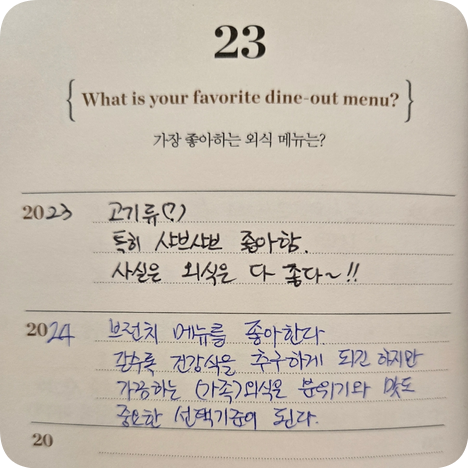 23
{ What is your favorite dine-out menu? }
가장 좋아하는 외식 메뉴는?
2023 고기류(?)
특히 샤브샤브 좋아함.
사실은 외식은 다 좋다~!!
2024 브런치 메뉴를 좋아한다.
갈수록 건강식을 추구하게 되긴 하지만
가끔하는 (가족)외식은 분위기와 맛도
중요한 선택기준이 된다.
20